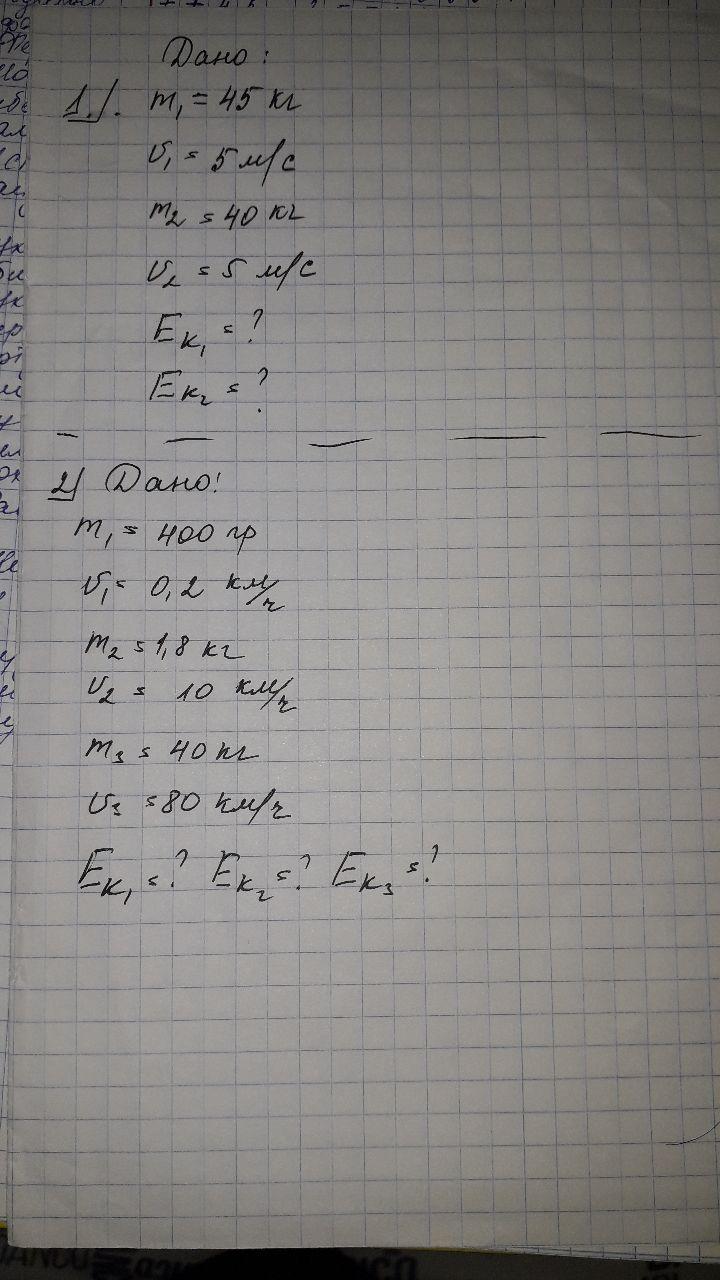 Дано:
1.). m₁ = 45 кг
v₁ = 5 м/с
m₂ = 40 кг
v₂ = 5 м/с
Eк₁ = ?
Eк₂ = ?
2) Дано:
m₁ = 400 гр
v₁ = 0,2 км/ч
m₂ = 1,8 кг
v₂ = 10 км/ч
m₃ = 40 кг
v₃ = 80 км/ч
Eк₁ = ? Eк₂ = ? Eк₃ = ?